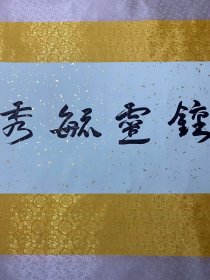 鍾靈毓秀